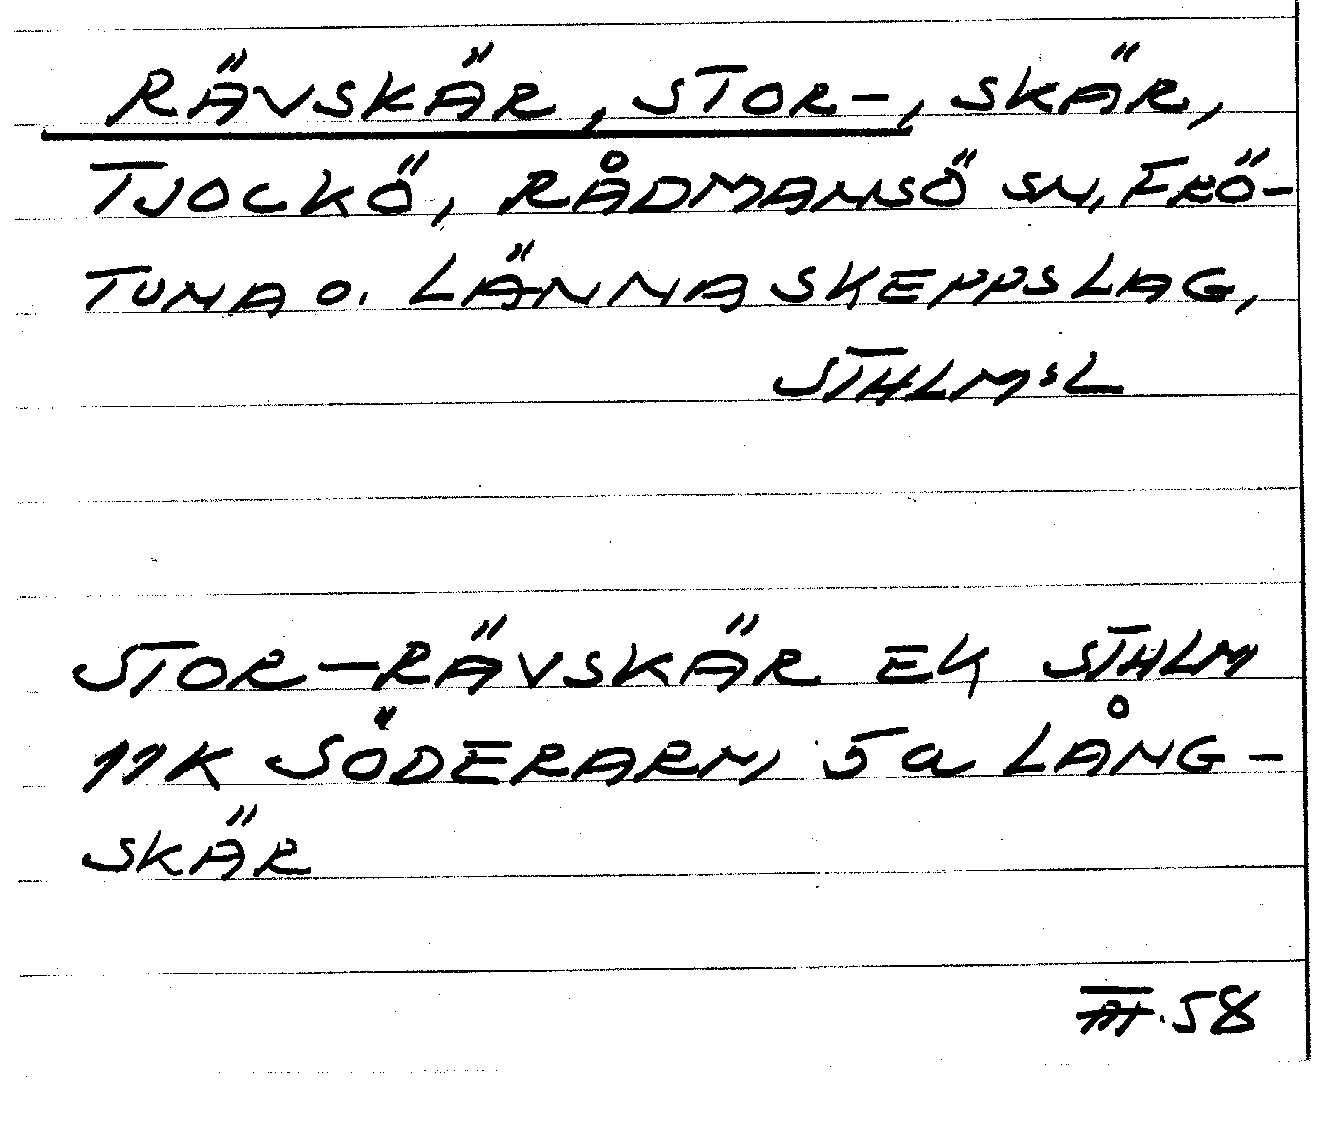 RÄVSKÄR, STOR-, SKÄR,
TJOCKÖ, RÅDMANSÖ SN, FRÖ-
TUNA O. LÄNNA SKEPPSLAG,
STHLMSL
STOR-RÄVSKÄR EK STHLM
11K SÖDERARM, 5a LÅNG-
SKÄR
.58